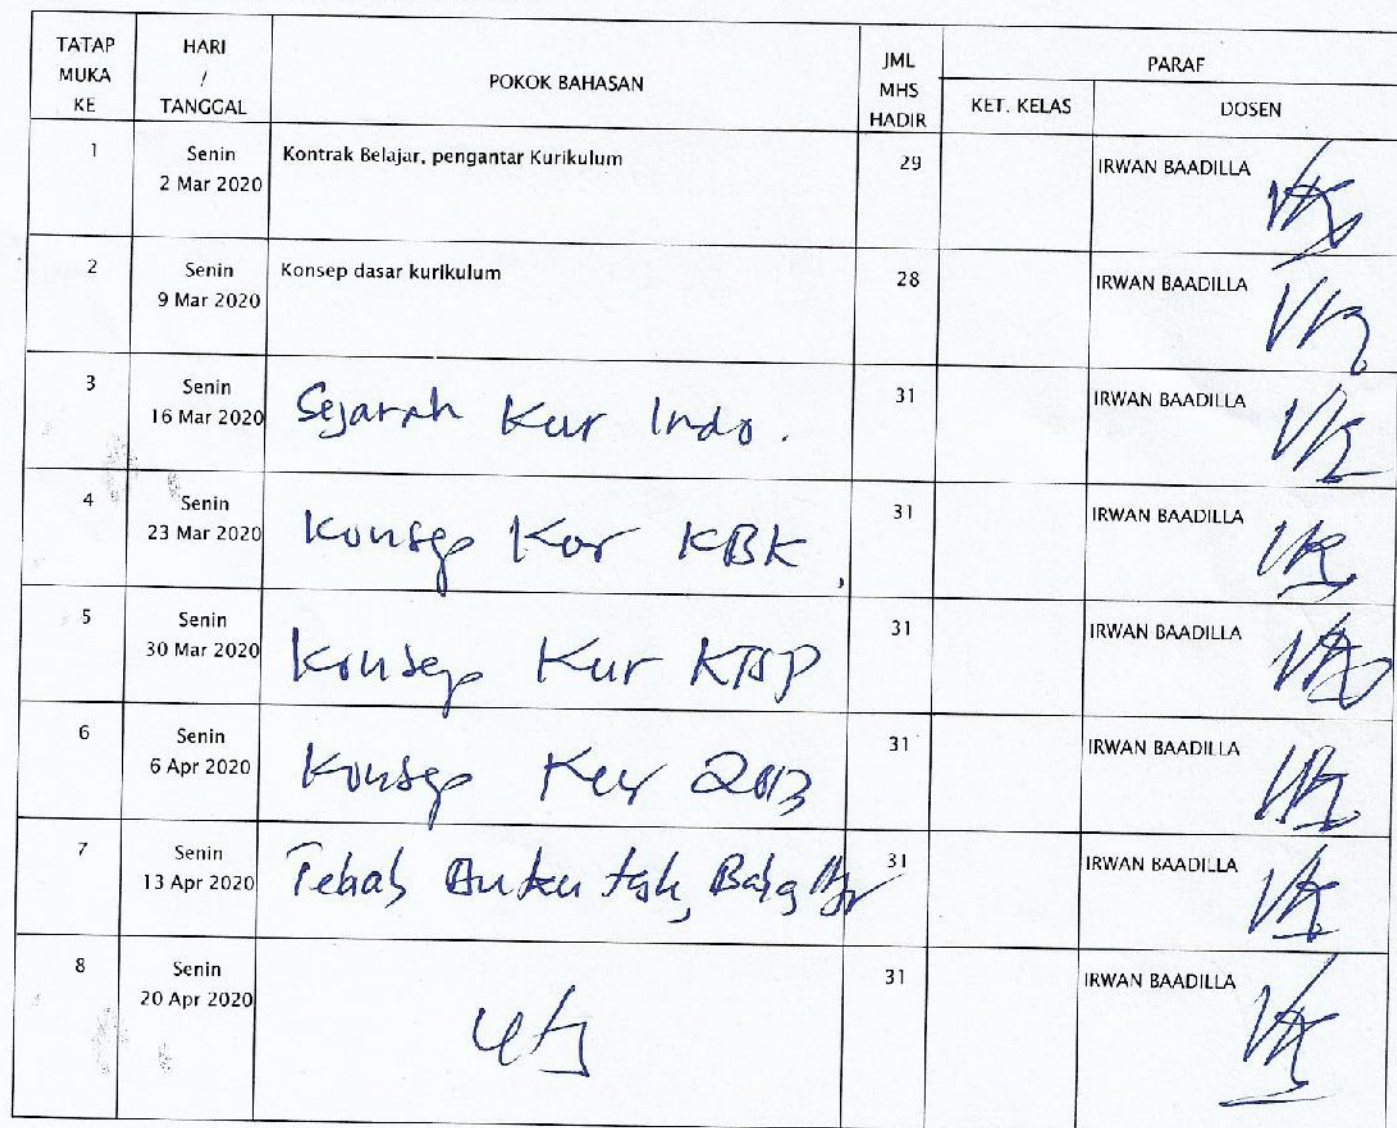 TATAP MUKA KE
HARI / TANGGAL
POKOK BAHASAN
JML MHS HADIR
PARAF
KET. KELAS
DOSEN
1 Senin 2 Mar 2020 Kontrak Belajar, pengantar Kurikulum 29 IRWAN BAADILLA
2 Senin 9 Mar 2020 Konsep dasar kurikulum 28 IRWAN BAADILLA
3 Senin 16 Mar 2020 Sejarah Kur Indo. 31 IRWAN BAADILLA
4 Senin 23 Mar 2020 Konsep Kur KBK, 31 IRWAN BAADILLA
5 Senin 30 Mar 2020 Konsep Kur KTSP 31 IRWAN BAADILLA
6 Senin 6 Apr 2020 Konsep Kur 2013 31 IRWAN BAADILLA
7 Senin 13 Apr 2020 31 IRWAN BAADILLA
8 Senin 20 Apr 2020 uts 31 IRWAN BAADILLA